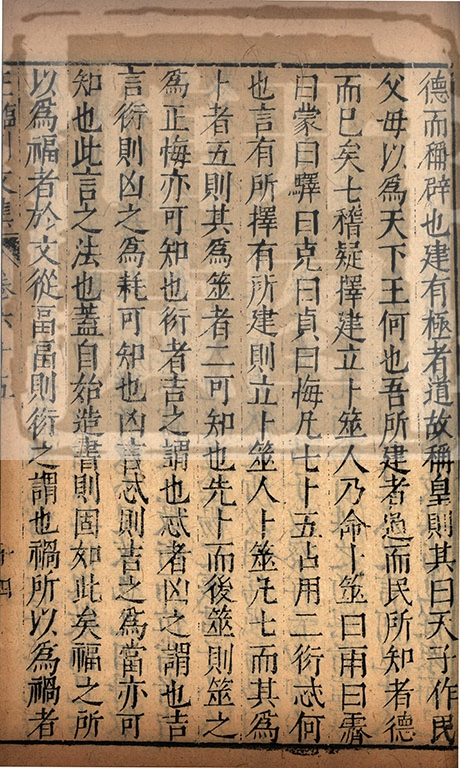 德而稱辟也建有極者道故稱皇則其曰天子作民
父毋以爲天下王何也吾所建者道而民所知者德
而已矣七稽疑擇建立卜筮人乃命卜筮曰雨曰霽
曰蒙曰驛曰克曰貞曰悔凢七卜五占用二衍忒何
也言有所擇有所建則立卜筮人卜筮凢七而其爲
卜者五則其爲筮者二可知也先卜而後筮則筮之
爲正悔亦可知也衍者吉之謂也忒者凶之謂也吉
言衍則凶之爲耗可知也凶言忒則吉之爲當亦可
知也此言之法也蓋自始造書則固如此矣福之所
以爲福者於文從畐畐則衍之謂也禍所以爲禍者
王臨川文集 卷六十五 十四